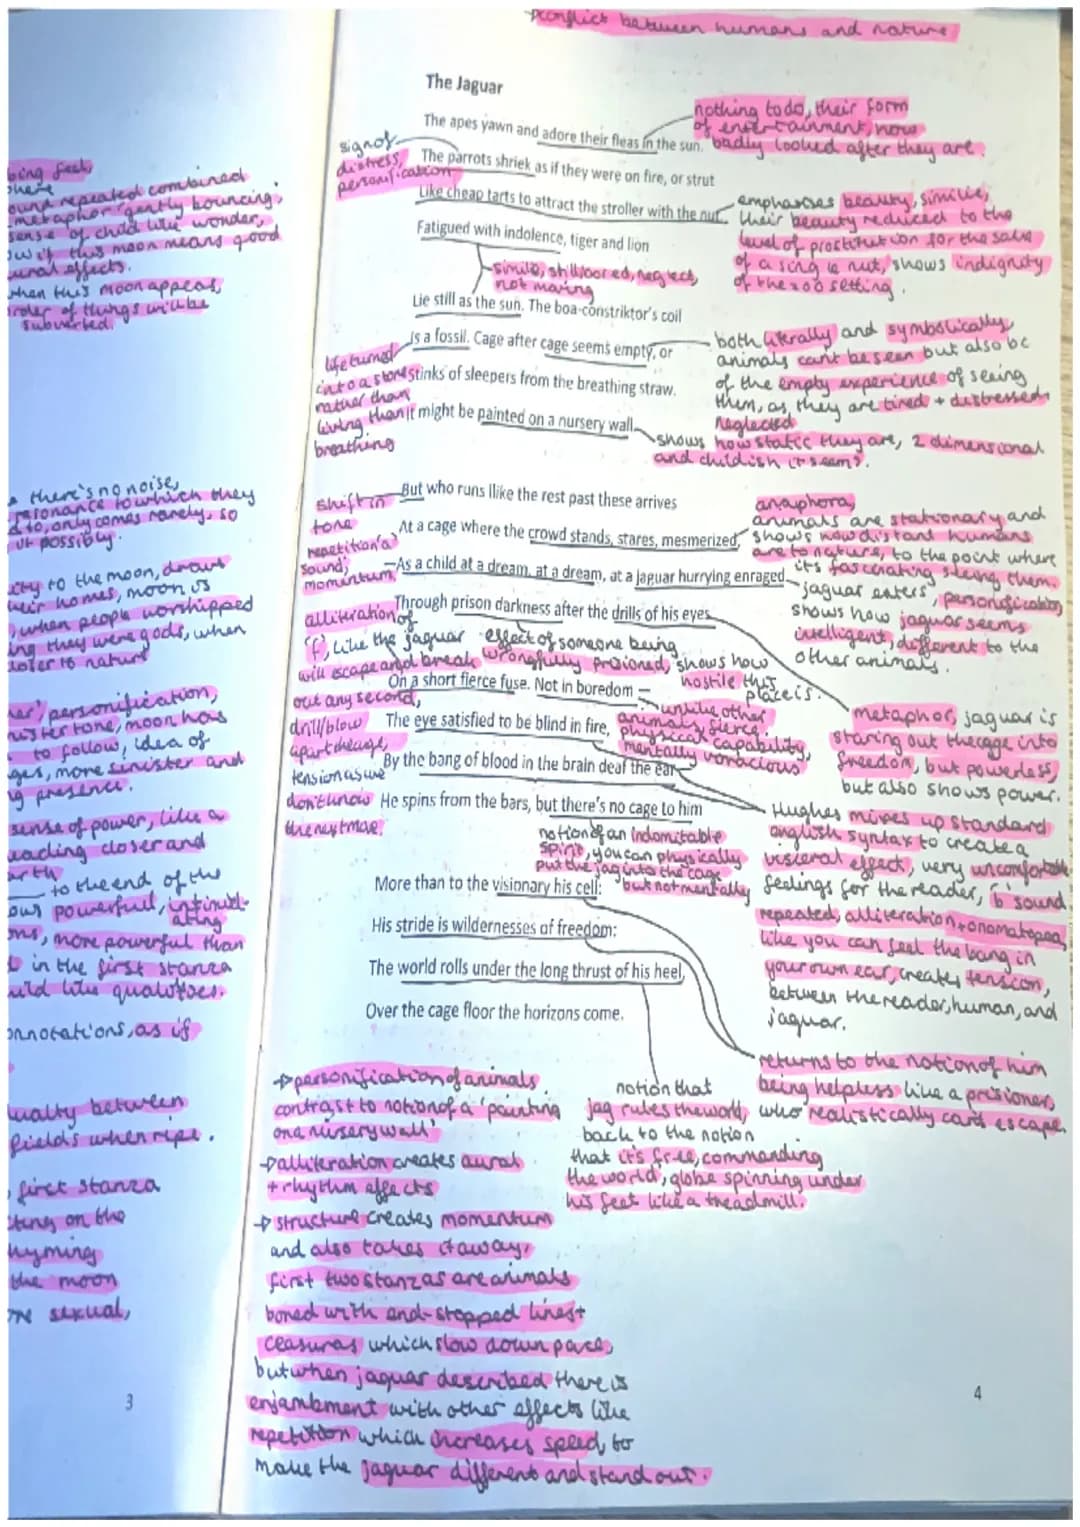 conflict between humans and nature
The Jaguar
The apes yawn and adore their fleas in the sun.
nothing to do, their form
of entertainment, how
badly looked after they are.
sign of
distress,
personification
The parrots shriek as if they were on fire, or strut
Like cheap tarts to attract the stroller with the nut.
emphasises beauty, simile,
their beauty reduced to the
level of prostitution for the sake
of a single nut, shows indignity
of the zoo setting.
Fatigued with indolence, tiger and lion
simile, still, bored, neglect,
not moving
Lie still as the sun. The boa-constriktor's coil
Is a fossil. Cage after cage seems empty, or
both literally and symbolically
animals can't be seen but also be
of the empty experience of seeing
them, as, they are tired + distressed
neglected
life turned
into a stone
rather than
living than
breathing
stinks of sleepers from the breathing straw.
It might be painted on a nursery wall.
shows how static they are, 2 dimensional
and childish it seems.
shift in
tone
But who runs llike the rest past these arrives
At a cage where the crowd stands, stares, mesmerized,
anaphora,
animals are stationary and
shows how distant humans
are to nature, to the point where
it's fascinating seeing them.
repetition 'a'
sound,
momentum
As a child at a dream, at a dream, at a jaguar hurrying enraged
'jaguar enters', personification,
shows how jaguar seems
intelligent, different to the
other animals.
Through prison darkness after the drills of his eyes
alliteration of
'f', like the jaguar
will escape and break
out any second,
effect of someone being
wrongfully prisioned, shows how
hostile this
place is.
On a short fierce fuse. Not in boredom –
unlike other
animals, fierce.
physical capability,
mentally voracious
metaphor, jaguar is
staring out the cage into
freedom, but powerless,
but also shows power.
drill/blow
apart the cage,
tension as we
don't know
the next move.
The eye satisfied to be blind in fire,
By the bang of blood in the brain deaf the ear
He spins from the bars, but there's no cage to him
Hughes mixes up standard
english syntax to create a
visceral effect, very uncomfortable
feelings for the reader, 'b' sound
repeated, alliteration + onomatopea,
like you can feel the bang in
your own ear, creates tension,
between the reader, human, and
jaguar.
notion of an indomitable
spirit, you can physically
put the jag into the cage
but not mentally
More than to the visionary his cell:
His stride is wildernesses of freedom:
The world rolls under the long thrust of his heel,
Over the cage floor the horizons come.
returns to the notion of him
being helpless like a prisioner,
who realistically can't escape.
notion that
jag rules the world,
back to the notion
that it's free, commanding
the world, globe spinning under
his feet like a treadmill.
→ personification of animals
contrast to notion of a 'painting
on a nursery wall'
→ alliteration creates aural
+ rhythm effects
→ structure creates momentum
and also takes it away,
first two stanzas are animals
bored with end-stopped lines +
ceasuras which slow down pace,
but when jaguar described there is
enjambment with other effects like
repetition which increases speed, to
make the jaguar different and stand out.
4
ound repeated combined
metaphor 'gently bouncing',
sense of child like wonder,
this moon means good
effects.
when this moon appears,
order of things will be
subverted.
there's no noise,
resonance to which they
to, only comes rarely, so
possibly.
to the moon, draws
their homes, moon is
when people worshipped
they were gods, when
closer to nature
personification,
tone, moon has
to follow, idea of
more sinister and
presence.
sense of power, like a
closer and
to the end of the
powerful, intimid-
ating
more powerful than
in the first stanza
child like qualities.
connotations, as if
between
fields when ripe.
first stanza
on the
rhyming
the moon
sexual,
3